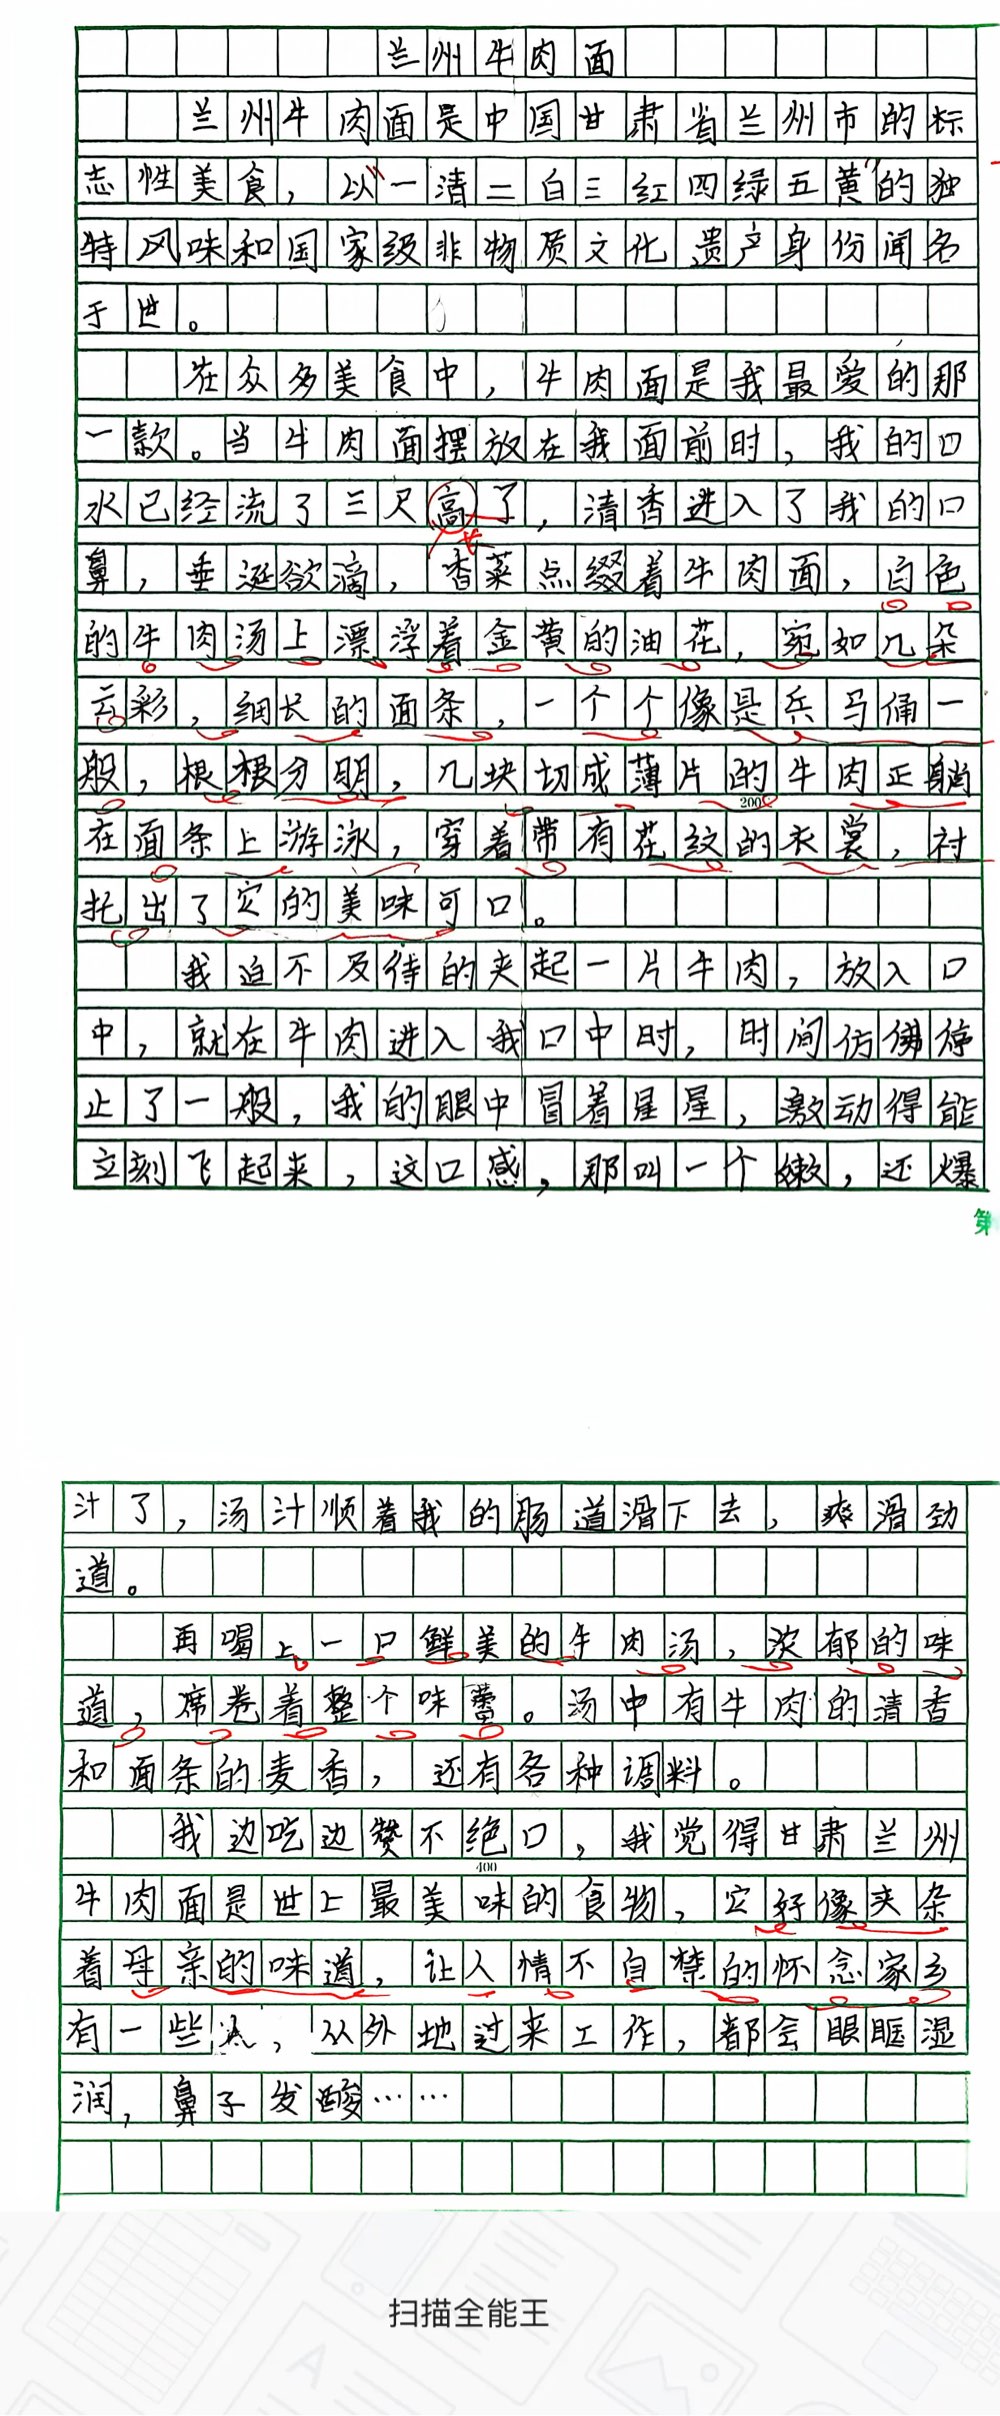 兰州牛肉面
兰州牛肉面是中国甘肃省兰州市的标
志性美食，以“一清二白三红四绿五黄”的独
特风味和国家级非物质文化遗产身份闻名
于世。
在众多美食中，牛肉面是我最爱的那
一款。当牛肉面摆放在我面前时，我的口
水已经流了三尺高了，清香进入了我的口
长
鼻，垂涎欲滴，香菜点缀着牛肉面，白色
的牛肉汤上漂浮着金黄的油花，宛如几朵
云彩，细长的面条，一个个像是兵马俑一
般，根根分明，几块切成薄片的牛肉正躺
200
在面条上游泳，穿着带有花纹的衣裳，衬
托出了它的美味可口。
我迫不及待的夹起一片牛肉，放入口
中，就在牛肉进入我口中时，时间仿佛停
止了一般，我的眼中冒着星星，激动得能
立刻飞起来，这口感，那叫一个嫩，还爆
第
汁了，汤汁顺着我的肠道滑下去，爽滑劲
道。
再喝上一口鲜美的牛肉汤，浓郁的味
道，席卷着整个味蕾。汤中有牛肉的清香
和面条的麦香，还有各种调料。
我边吃边赞不绝口，我觉得甘肃兰州
400
牛肉面是世上最美味的食物，它好像夹杂
着母亲的味道，让人情不自禁的怀念家乡
有一些，从外地过来工作，都会眼眶湿
润，鼻子发酸……
扫描全能王